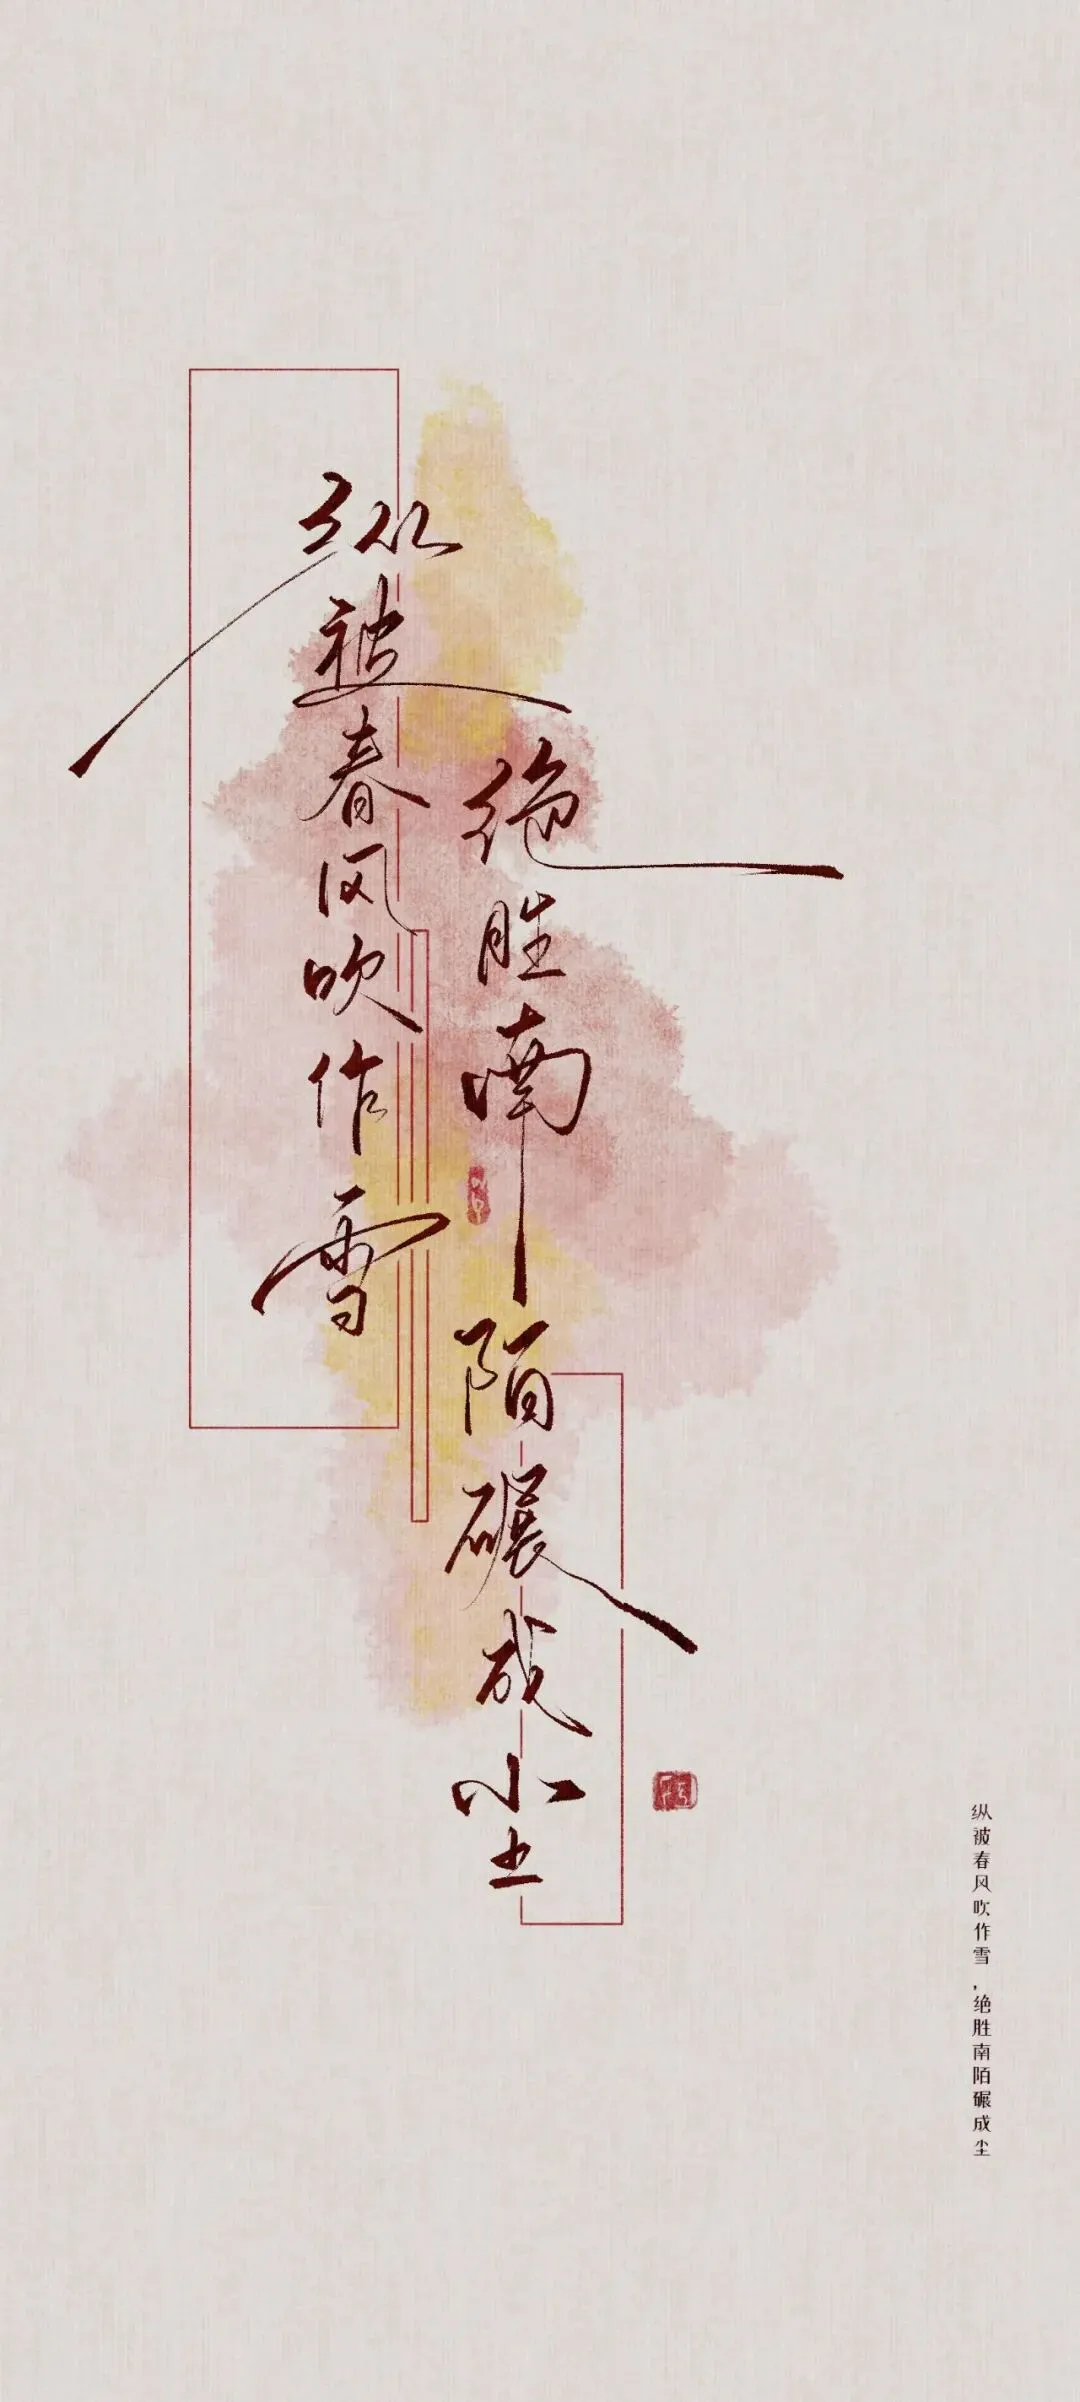 纵被春风吹作雪
绝胜南陌碾成尘
纵被春风吹作雪,绝胜南陌碾成尘